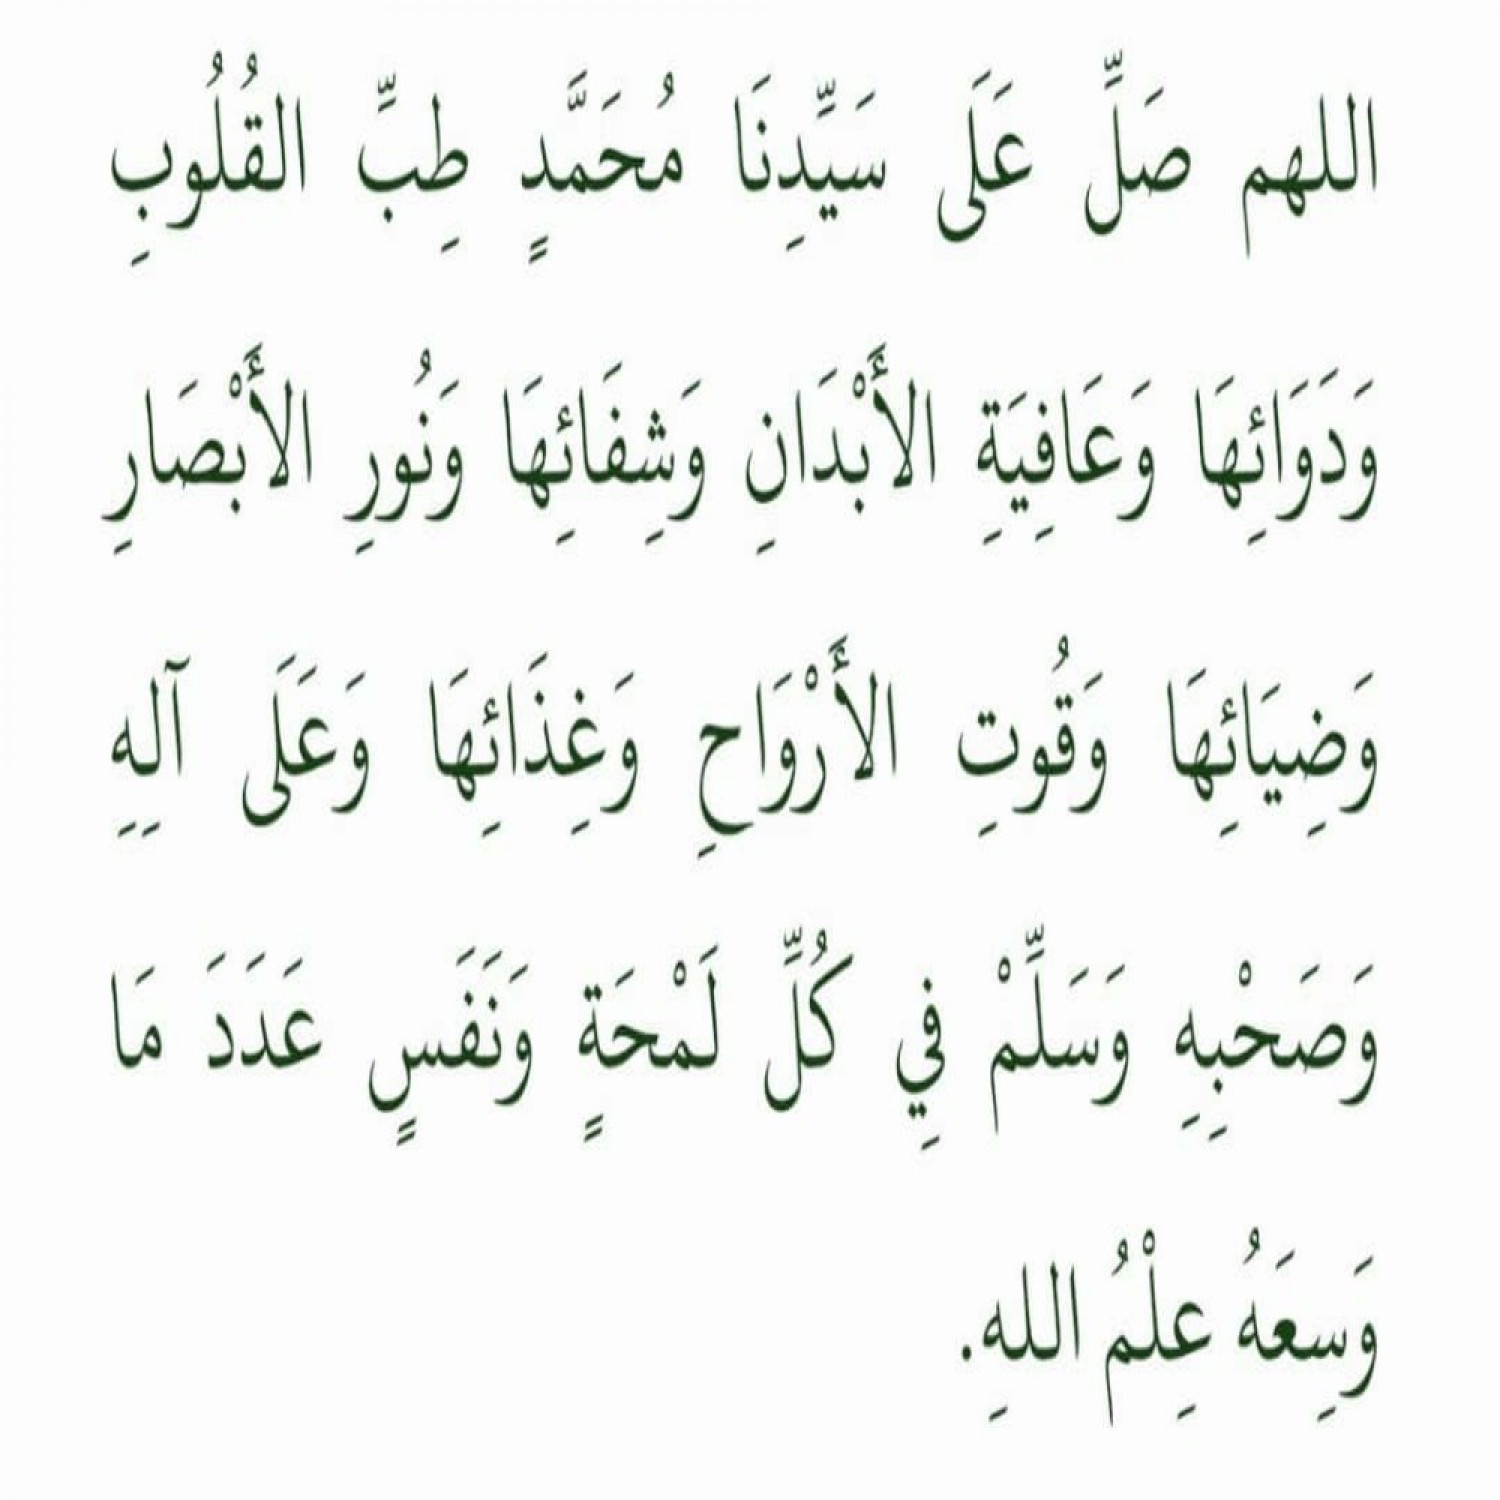 اللهم صَلِّ عَلَى سَيِّدِنَا مُحَمَّدٍ طِبِّ القُلُوبِ
وَدَوَائِهَا وَعَافِيَةِ الأَبْدَانِ وَشِفَائِهَا وَنُورِ الأَبْصَارِ
وَضِيَائِهَا وَقُوتِ الأَرْوَاحِ وَغِذَائِهَا وَعَلَى آلِهِ
وَصَحْبِهِ وَسَلِّمْ فِي كُلِّ لَمْحَةٍ وَنَفَسٍ عَدَدَ مَا
وَسِعَهُ عِلْمُ اللهِ.